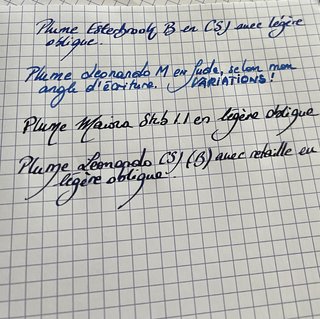 Plume Esterbrook B en CSI avec légère
oblique.
Plume Leonardo M en fude, selon mon
angle d'écriture. VARIATIONS !
Plume Maiora Stub 1.1 en légère oblique
Plume Leonardo CSI (B) avec retaille en
légère oblique.